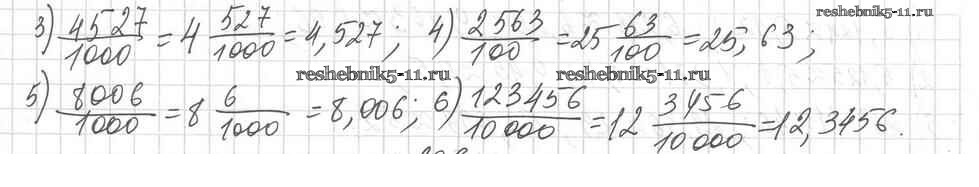 reshebnik5-11.ru
3) 4527/1000 = 4 527/1000 = 4,527; 4) 2563/100 = 25 63/100 = 25,63;
reshebnik5-11.ru
5) 8006/1000 = 8 6/1000 = 8,006; 6) 123456/10000 = 12 3456/10000 = 12,3456.